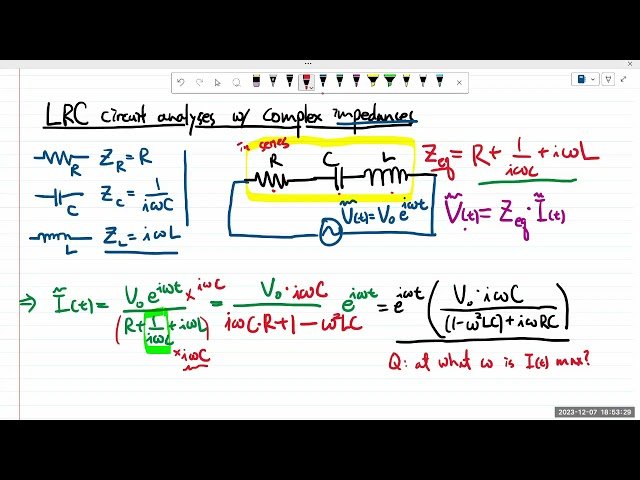 LRC circuit analyses w/ complex impedances
R Z_R = R
C Z_C = 1/(iωC)
L Z_L = iωL
in series
R C L
Ṽ(t) = V₀ e^{iωt}
Z_eq = R + 1/(iωC) + iωL
Ṽ(t) = Z_eq · Ĩ(t)
⇒ Ĩ(t) = V₀ e^{iωt} × iωC / (R + 1/(iωC) + iωL) × iωC = V₀ · iωC / (iωC·R + 1 − ω²LC) e^{iωt} = e^{iωt} (V₀ · iωC / ((1−ω²LC) + iωRC))
Q: at what ω is I(t) max?
2023-12-07 18:53:29